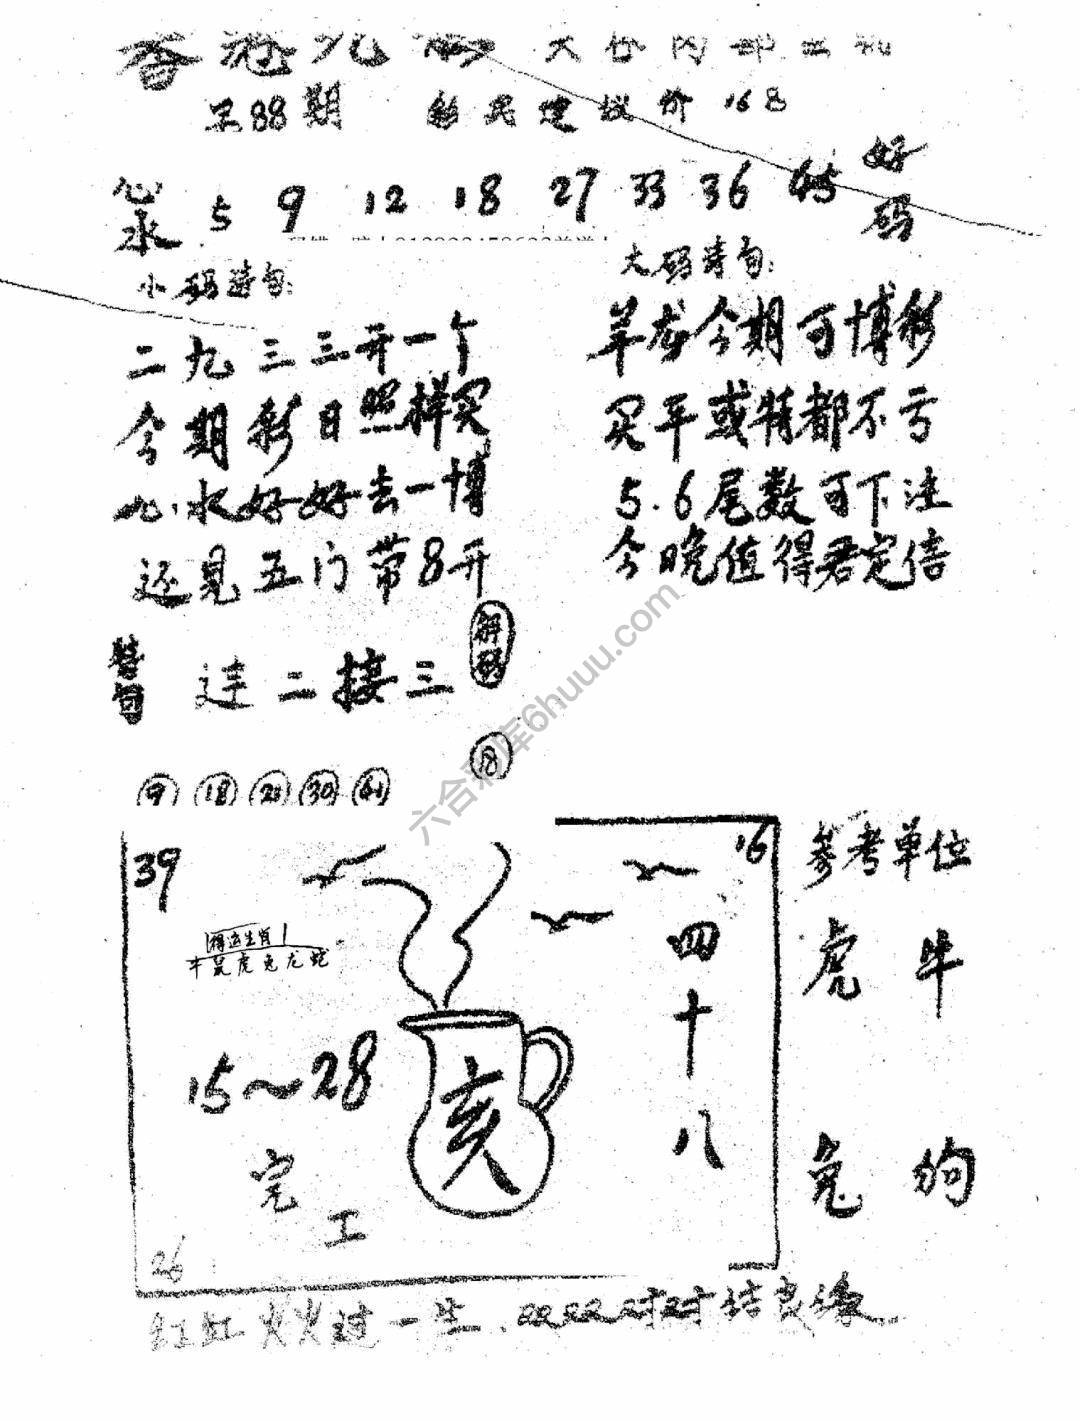 香港九
第88期 彩民建议价168
心水 5 9 12 18 27 33 36 45 好码
小码诗句:
二九三三开一个
今期彩日照样买
九水好好去一博
还见五门带8开
大码诗句:
羊龙今期可博彩
买平或特都不亏
5.6尾数可下注
今晚值得君定倍
连二接三
解码
18
9 18 30
39
16
得运生肖
牛鼠虎兔龙蛇
四十八
15~28
亥
完工
26
参考单位
虎 牛
兔 狗
红红火火过一生、双双对对结良缘
六合彩库6huuu.com